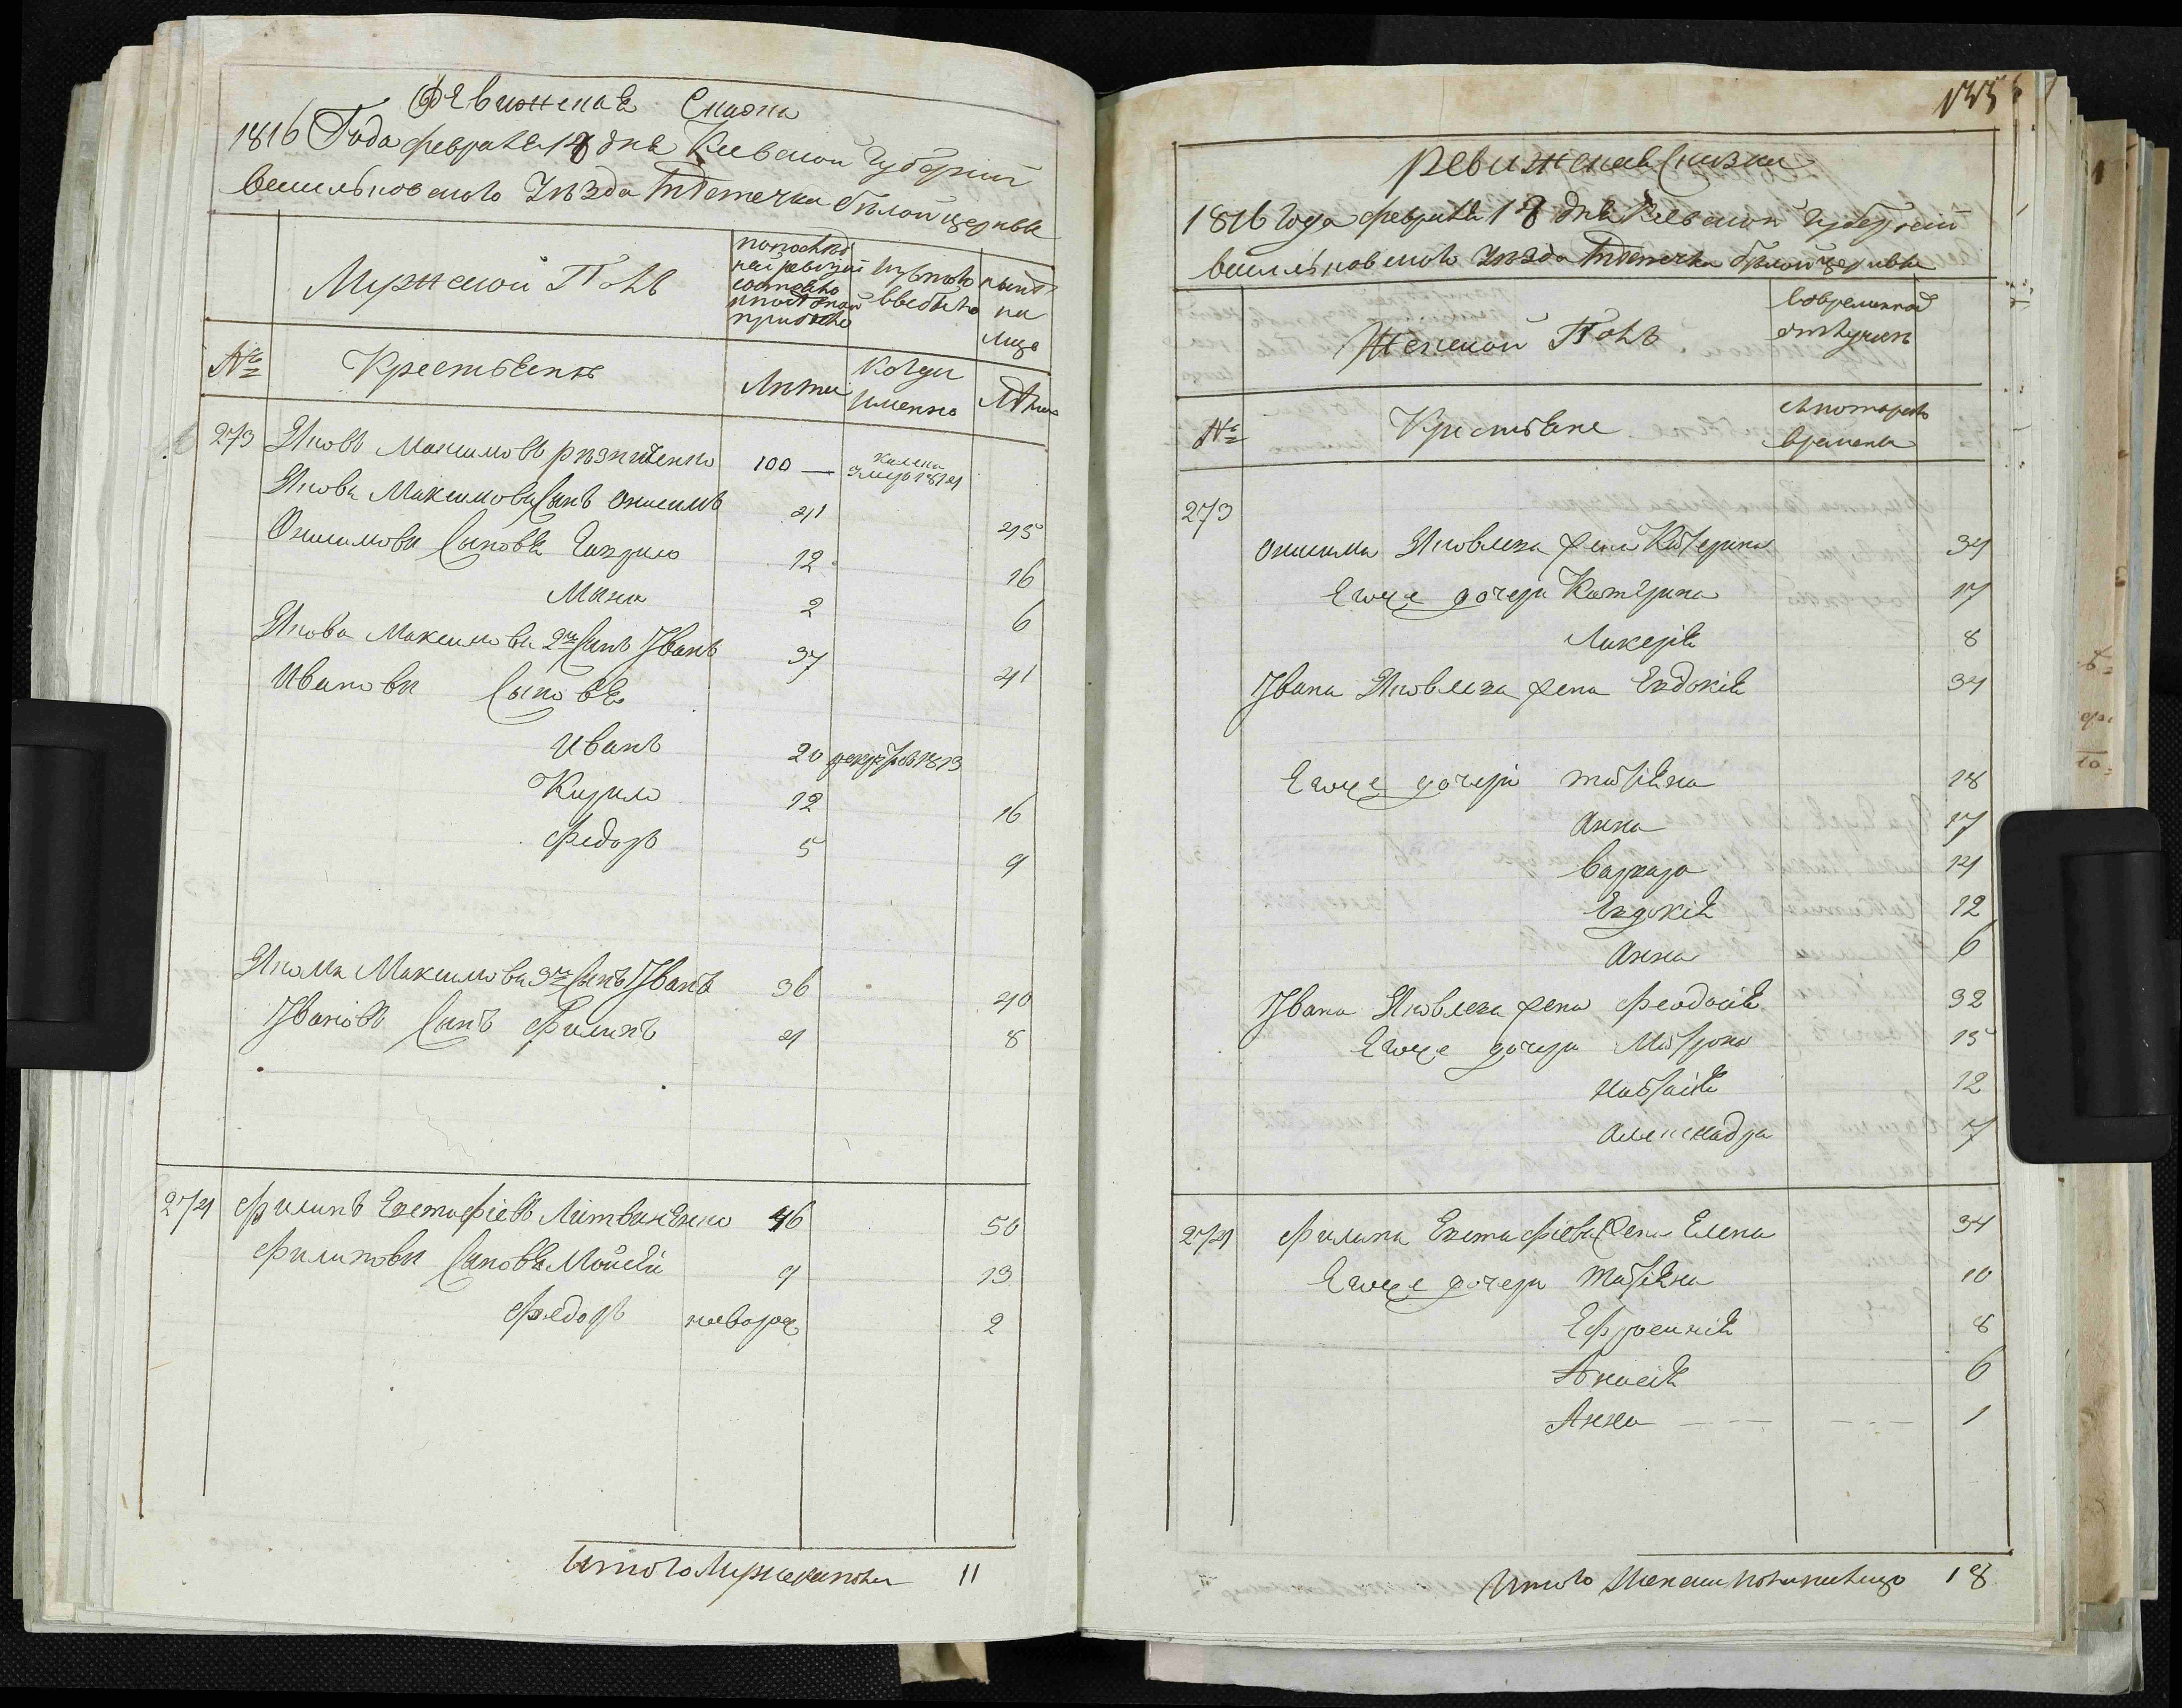 Ревижская Сказка
1816 Года февраля 18 дня Киевской Губернии
васильковского Уезда Местечка белой церквы
Мужеской Полъ
по последней ревизии состояло и после оной прибыло
Изъ того выбыло
ныне на лицо
№
Крестьянъ
Лѣты
Когда Именно
Лѣта
273 Яковъ Максимовъ резниченко 100 — умер 1814
Якова Максимова Сынъ Онисимъ 41 45
Онисимови Сыновья Гаврило 12 16
Мина 2 6
Якова Максимова 2й Сынъ Іванъ 37 41
Иванови Сыновья
Иванъ 20 рекрутъ 1813
Кирило 12 16
Федоръ 5 9
Якова Максимова 3й Сынъ Іванъ 36 40
Івановъ Сынъ Филипъ 4 8
274 Филипъ Евстафіевъ Литвиненко 46 50
Филипови Сыновья Мойсей 9 13
Федоръ новорож 2
Итого Мужеска пола 11
ревижская Сказка
1816 года февраля 18 дня Киевской Губернии
васильковского Уезда Местечка белой церквы
Женской Полъ
Во временной отлучке
№
Крестьяне
съ которого времены
273
Онисима Яковлева жена Катерина 34
Егоже дочери Катерина 17
Ликерія 8
Івана Яковлева жена Евдокія 34
Егоже дочери татіяна 18
Анна 17
Варвара 14
Евдокія 12
Анна 6
Івана Яковлева жена Феодосія 32
Егоже дочери Матрона 15
настасія 12
Александра 7
274 Филипа Евстафіева жена Елена 34
Егоже дочери татіяна 10
Ефросинія 8
Анна — — — 1
Итого Женска пола налицо 18